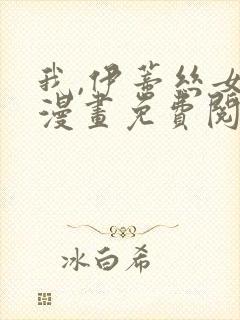 我,伊蒂絲女
漫畫免費閱
冰白希